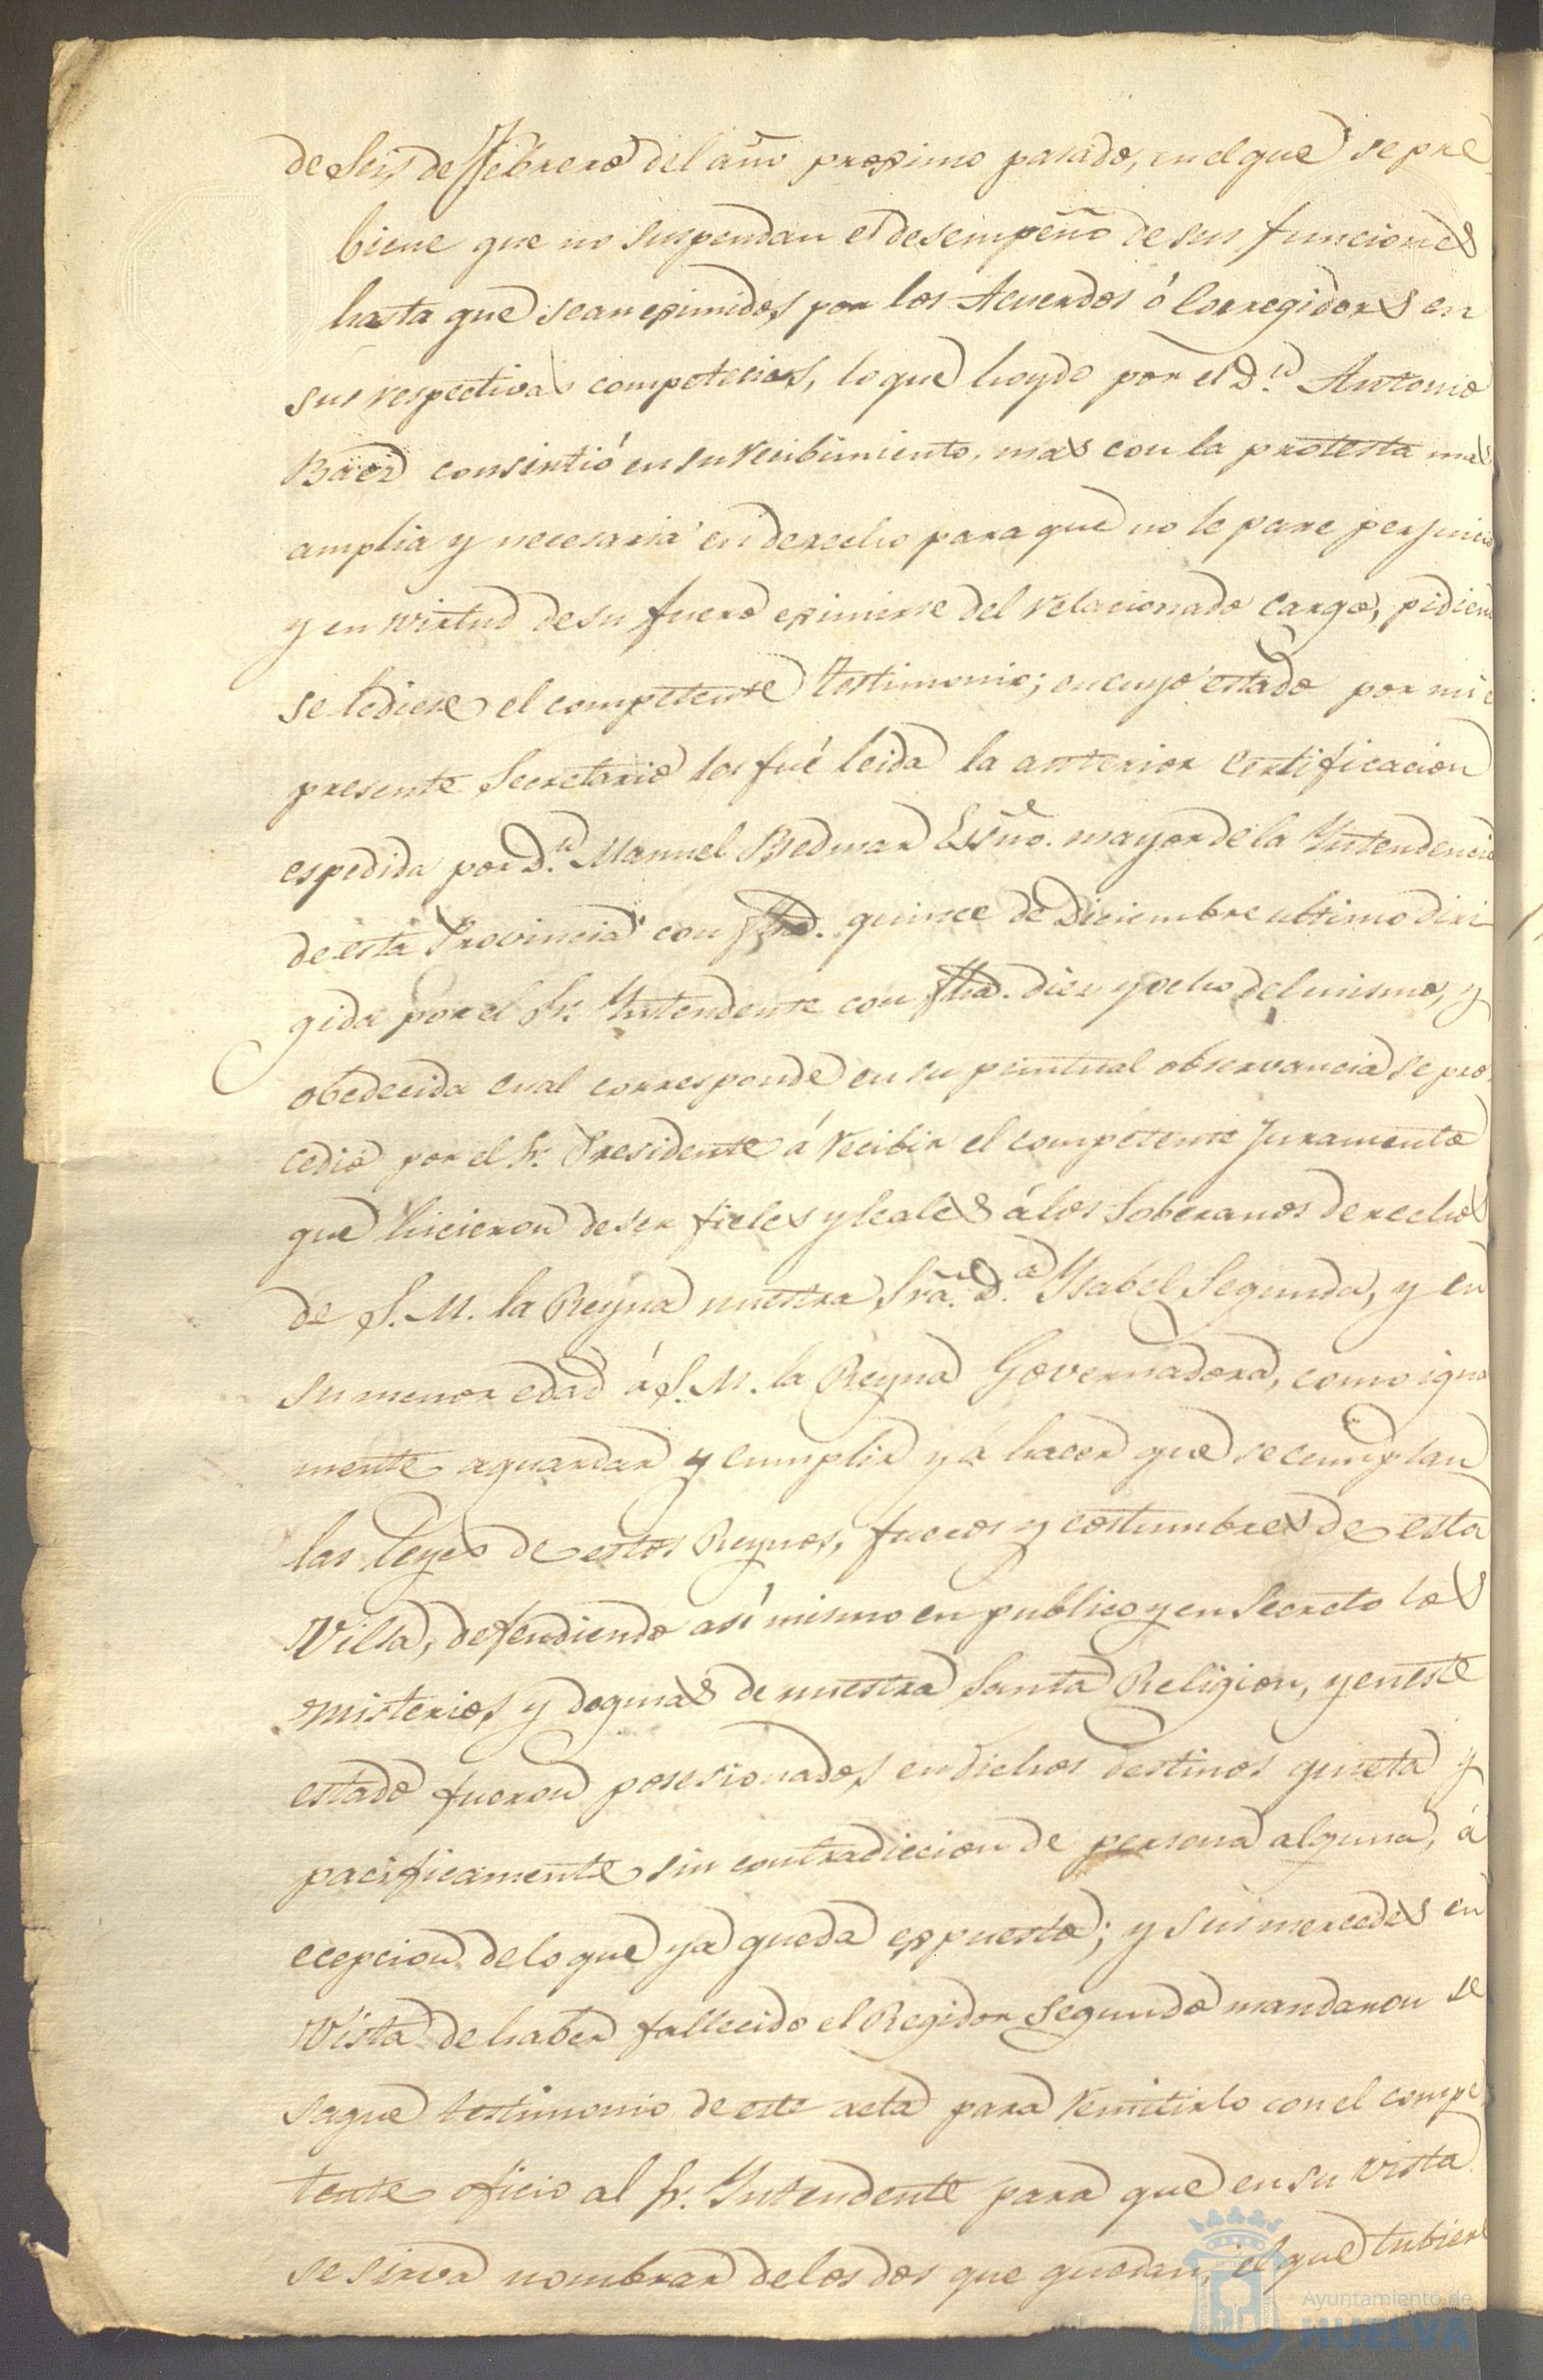 de Seis de Febrero del año proximo pasado, en el que se pre
biene que no suspendan el desempeño de sus funciones
hasta que sean eximidos por los Acuerdos ó Corregidores en
sus respectivas competecias, lo que hoydo por el D.n Antonio
Baez consintió en su recibimiento, mas con la protesta mas
amplia y necesaria en derecho para que no le pare perjuicio
y en virtud de su fuero eximirse del relacionado cargo, pidiend
se le diese el competente testimonio; en cuyo estado por mi e
presente Secretario les fué leida la anterior certificacion
espedida por D.n Manuel Bedmar Essño. mayor de la Yntendencia
de esta Provincia con fhã. quince de Diciembre ultimo diri
gida por el Sr. Yntendente con fhã. diez y ocho del mismo, y
obedecida cual corresponde en su puntual observancia se pro
cedio por el Sr. Presidente á recibir el competente Juramento
que hicieron de ser fieles y leales á los Soberanos derechos
de S. M. la Reyna nuestra Srã. D.a Ysabel Segunda, y en
su menor edad á S. M. la Reyna Governadora, como igual
mente aguardar y cumplir y á hacer que se cumplan
las leyes de estos Reynos, fueros y costumbres de esta
Villa, defendiendo así mismo en publico y en Secreto los
misterios y dogmas de nuestra Santa Religion, y en este
estado fueron posesionados en dichos destinos quieta y
pacificamente sin contradiccion de persona alguna, á
ecepcion de lo que ya queda expuesto; y sus mercedes en
Vista de haber fallecido el Regidor Segundo mandaron se
saque testimonio de este acta para remitirlo con el compe
tente oficio al Sr. Yntendente para que en su vista
se sirva nombrar de los dos que quedan, el que tubiere
Ayuntamiento de
HUELVA